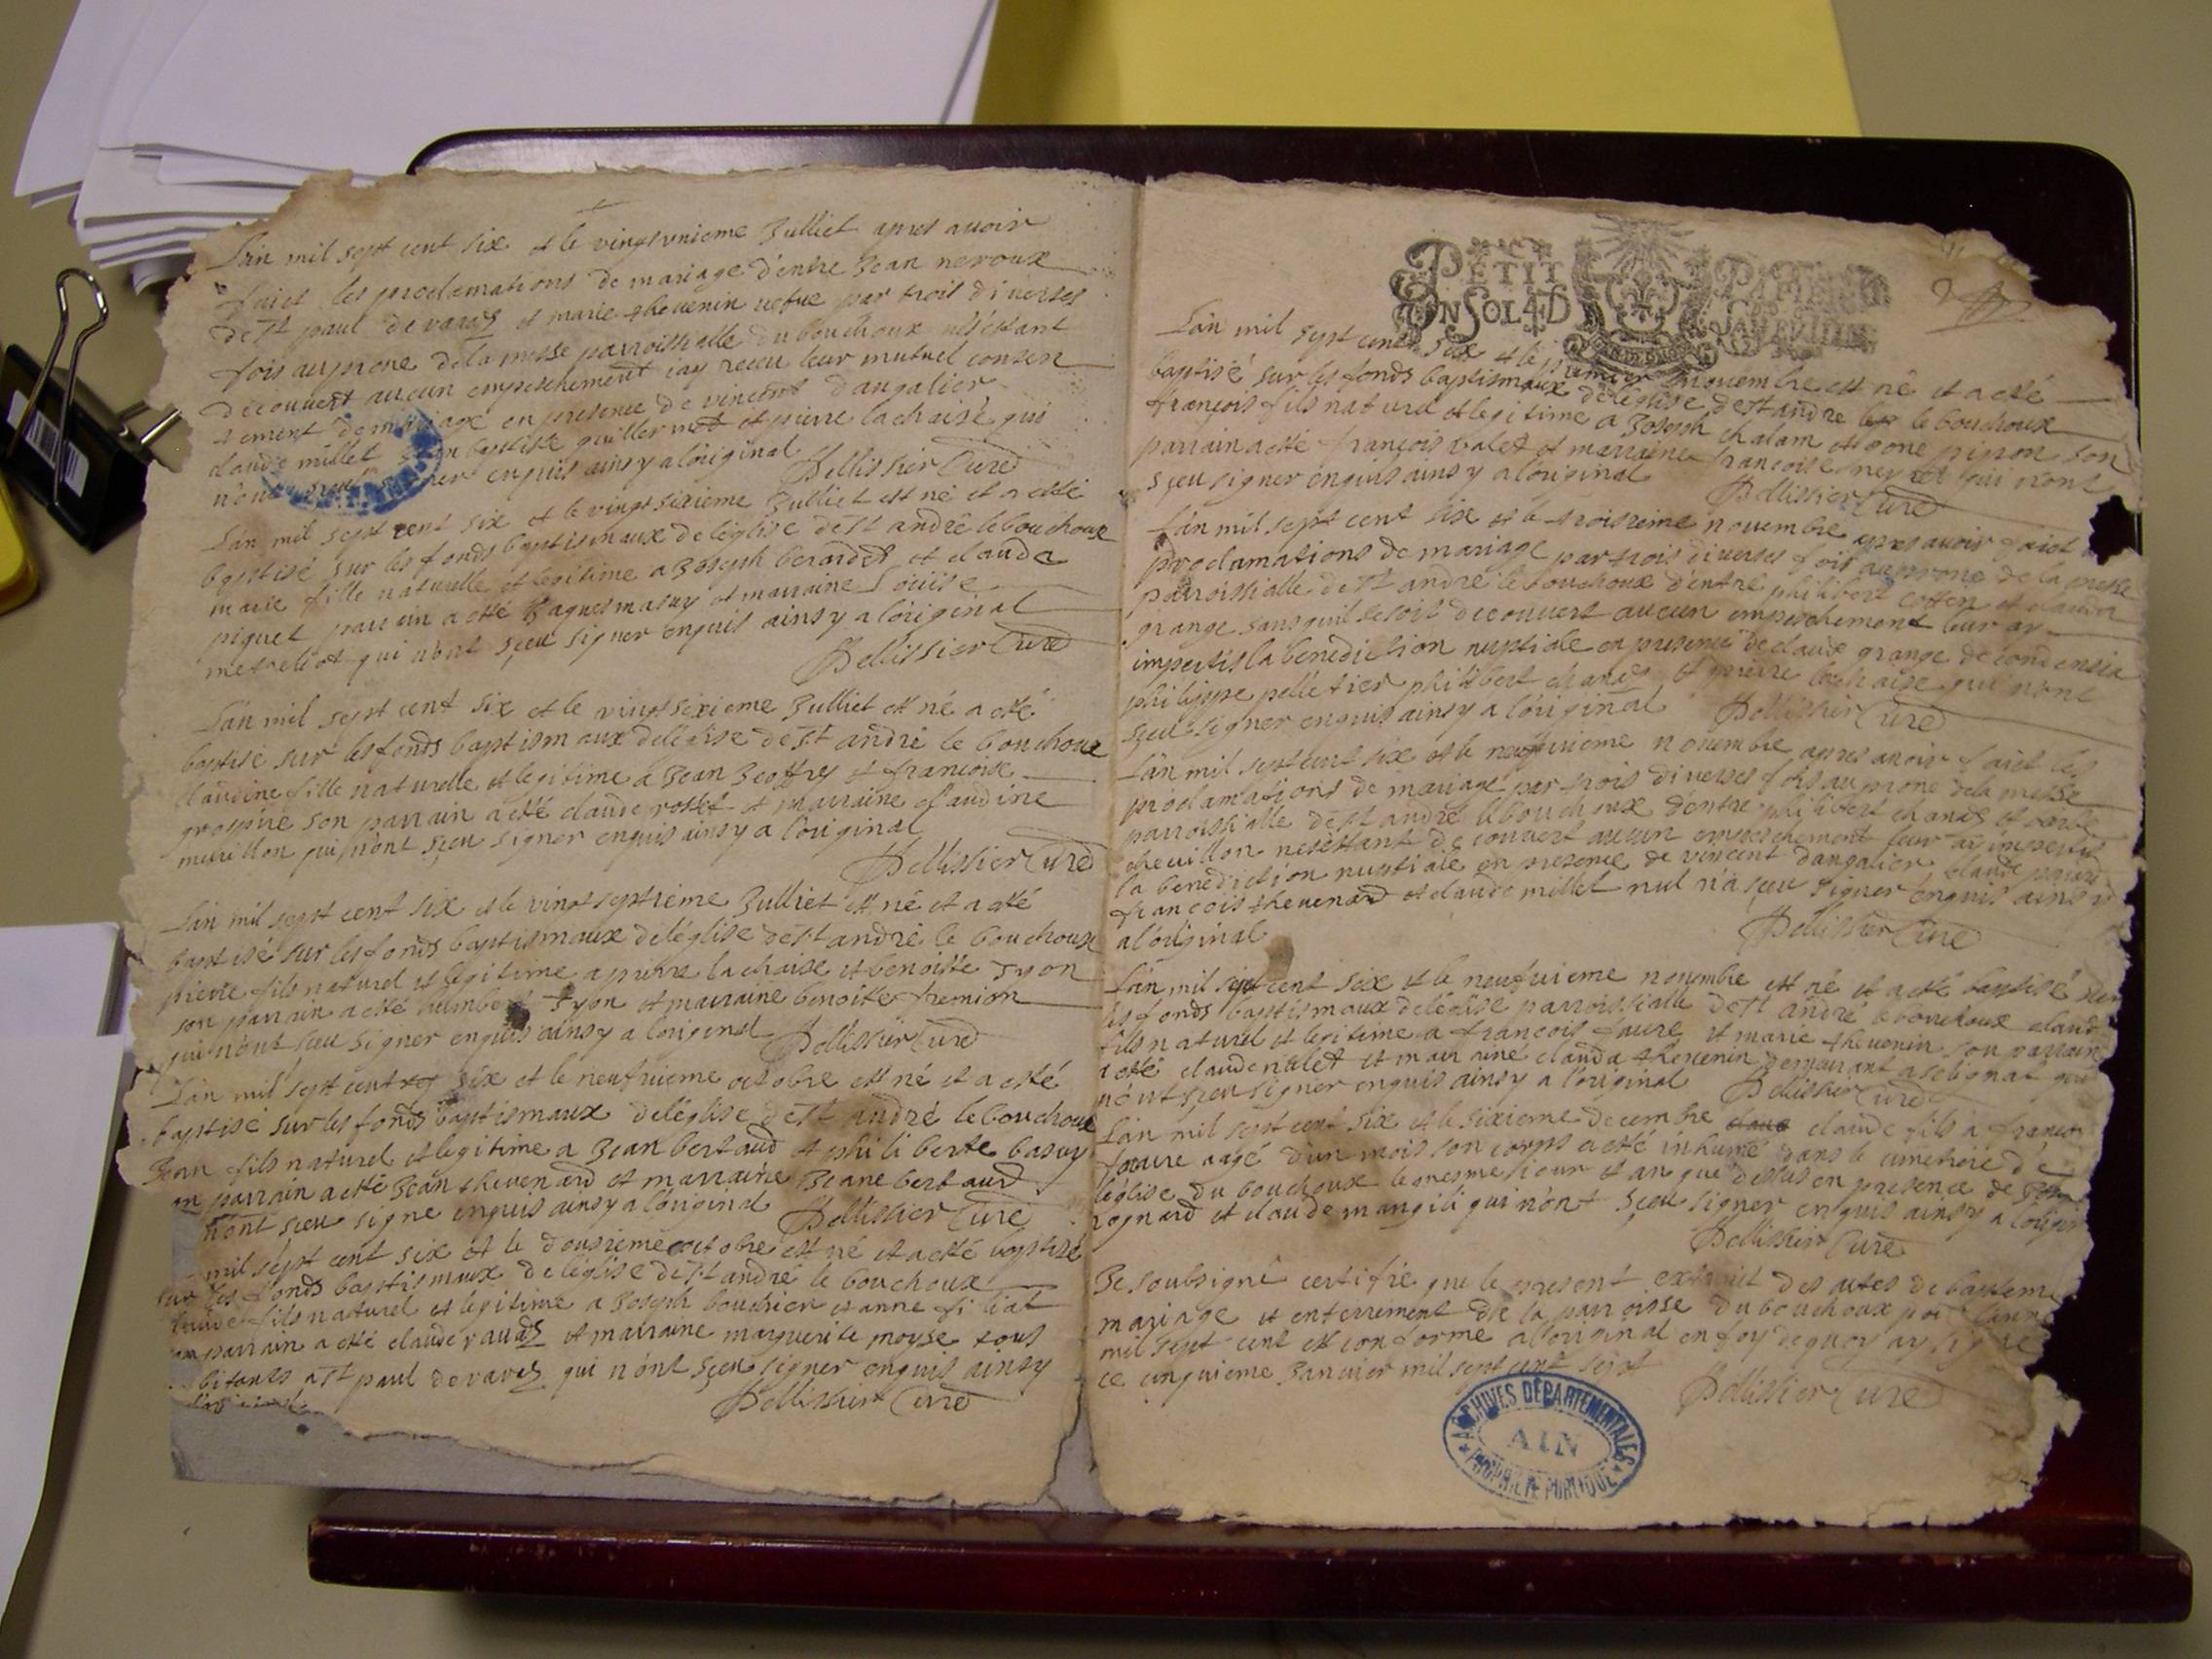 L'an mil sept cent six et le vingtunieme Julliet apres avoir
faict les proclamations de mariage d'entre Jean neroux
de st paul de varax et marie thevenin vefve par trois diverses
fois au prone de la messe parroissialle du bouchoux n'esttant
decouvert aucun empeschement j'ay receu leur mutuel consen
tement de mariage en presence de vincent dangalier
claude millet Jean baptiste guillermet et pierre lachaise qui
n'ont sceu signer enquis ainsy a l'original Pellissier Curé
L'an mil sept cent six et le vingt sixieme Julliet est né et a esté
baptisé sur les fonds baptismaux de l'eglise de st andré le bouchoux
marie fille naturelle et legitime a Joseph berardet et clauda
piquet parrain a esté Jaques masuy et marraine Louise
metreliot qui n'ont sçeu signer enquis ainsy a l'original
Pellissier Curé
L'an mil sept cent six et le vingt sixieme Julliet est né a esté
baptisé sur les fonds baptismaux de l'eglise de st andré le bouchoux
claudine fille naturelle et legitime a Jean Jeoffrey et francoise
grospire son parrain a esté claude rostet et marraine claudine
murillon qui n'ont sçeu signer enquis ainsy a l'original
Pellissier Curé
L'an mil sept cent six et le vingt septieme Julliet est né et a esté
baptisé sur les fonds baptismaux de l'eglise de st andré le bouchoux
pierre fils naturel et legitime a pierre la chaise et benoitte Tyon
son parrain a esté humbert Tyon et marraine benoitte fremion
qui n'ont sceu signer enquis ainsy a l'original Pellissier Curé
L'an mil sept cent six et le neufvieme octobre est né et a esté
baptisé sur les fonds baptismaux de l'eglise de st andré le bouchoux
Jean fils naturel et legitime a Jean bertaud et philiberte basuy
son parrain a esté Jean thevenard et marraine Jeane bertaud
n'ont sçeu signe enquis ainsy a l'original Pellissier Curé
mil sept cent six et le dousieme octobre est né et a esté baptisé
sur les fonds baptismaux de l'eglise de st andré le bouchoux
claude fils naturel et legitime a Joseph boudrier et anne filiat
son parrain a esté claude vaudz et marraine marguerite moyse tous
bitants a st paul de varax qui n'ont sçeu signer enquis ainsy
l'original Pellissier Curé
PETIT PAPIER
UN SOL 4 D
L'an mil sept cent six et le premier novembre est né et a esté
baptisé sur les fonds baptismaux de l'eglise de st andré le bouchoux
françois fils naturel et legitime a Joseph chalam et pone pinon son
parrain a esté françois valet et marraine francoise neyret qui n'ont
sçeu signer enquis ainsy a l'original Pellissier Curé
L'an mil sept cent six et le troisieme novembre apres avoir faict
proclamations de mariage par trois diverses fois au prone de la messe
parroissialle de st andré le bouchoux d'entre philibert cotten et clauda
grange sans qu'il se soit decouvert aucun empeschement leur ay
impertis la benediction nuptiale en presence de claude grange de condensia
philippe pelletier philibert chanez et pierre lachaise qui n'ont
sçeu signer enquis ainsy a l'original Pellissier Curé
L'an mil sept cent six et le neufvieme novembre apres avoir faict les
proclamations de mariage par trois diverses fois au prone de la messe
parroissialle de st andré le bouchoux d'entre philibert chanez et
chevillon n'esettant decouvert aucun empeschement leur ay impertis
la benediction nuptiale en presence de vincent dangalier claude
francois thevenard et claude millet nul n'a sçeu signer enquis ainsy
a l'original Pellissier Curé
L'an mil sept cent six et le neufvieme novembre est né et a esté baptisé sur
les fonds baptismaux de l'eglise parroissialle de st andré le bouchoux claude
fils naturel et legitime a francois faure et marie thevenin son parrain
a esté claude valet et marraine clauda thevenin demeurant a selignat qui
n'ont sçeu signer enquis ainsy a l'original Pellissier Curé
L'an mil sept cent six et le sixieme decembre claude fils a francois
faure aagé d'un mois son corps a esté inhumé dans le cimetiere de
l'eglise du bouchoux le mesme jour et an que dessus en presence de
rognard et claude mangili qui n'ont sçeu signer enquis ainsy a l'origin
Pellissier Curé
Je soubsigné certifie que le present extrait des actes de baptem
mariage et enterrement de la parroisse du bouchoux pour l'ann
mil sept cent est conforme a l'original en foy de quoy ay signé
ce cinquieme Janvier mil sept cent sept Pellissier Curé
ARCHIVES DÉPARTEMENTALES
AIN
PROPRIÉTÉ PUBLIQUE